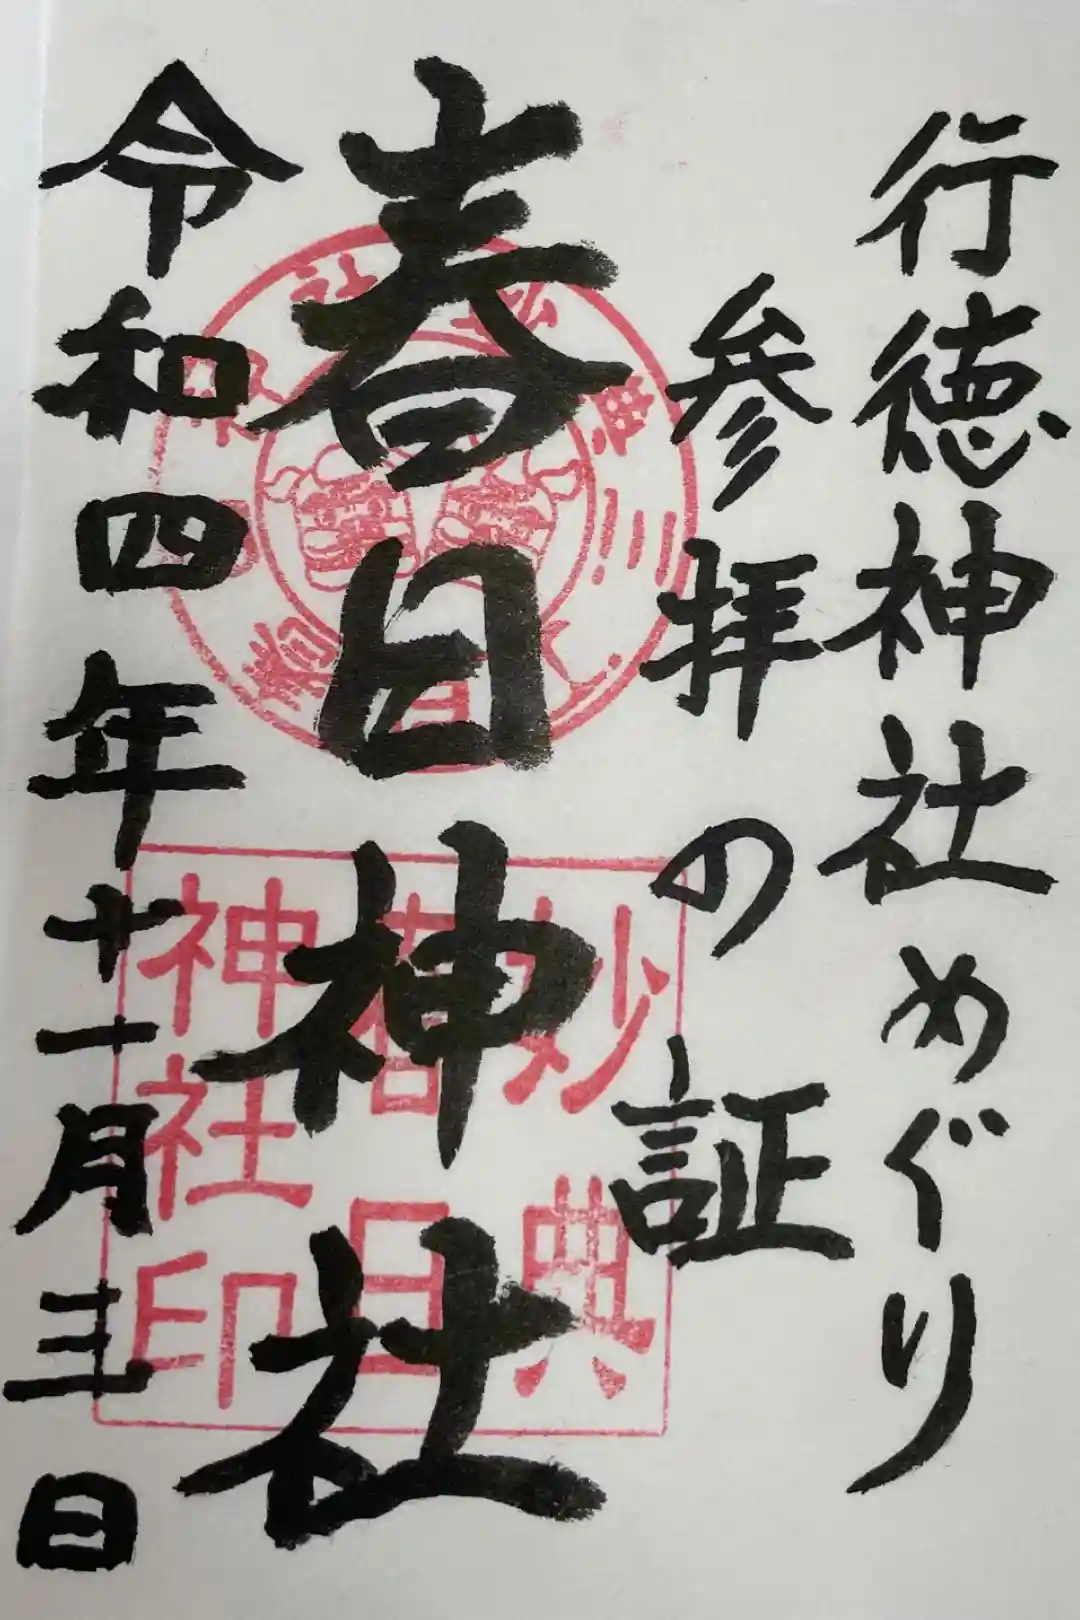 行徳神社めぐり
参拝の証
春日神社
令和四年十一月三日
妙典
春日
神社印